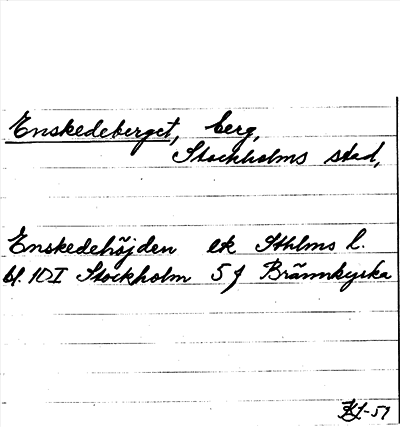 Enskedeberget, berg,
Stockholms stad,
Enskedehöjden ek Sthlms l.
bl. 10I Stockholm 5 f Brännkyrka